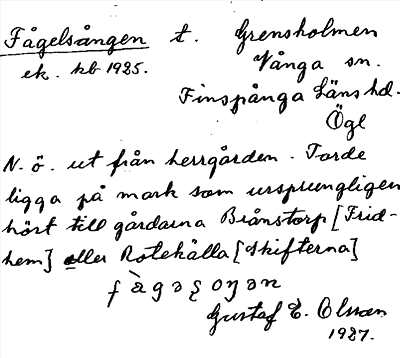 Fågelsången t. Grensholmen
ek. kb 1925. Vånga sn.
Finspånga Läns hd.
Ögl
N. ö. ut från herrgården. Torde
ligga på mark som ursprungligen
hört till gårdarna Brånstorp [Frid-
hem] eller Rotekälla [Skifterna]
Gustaf E. Olsson
1927.